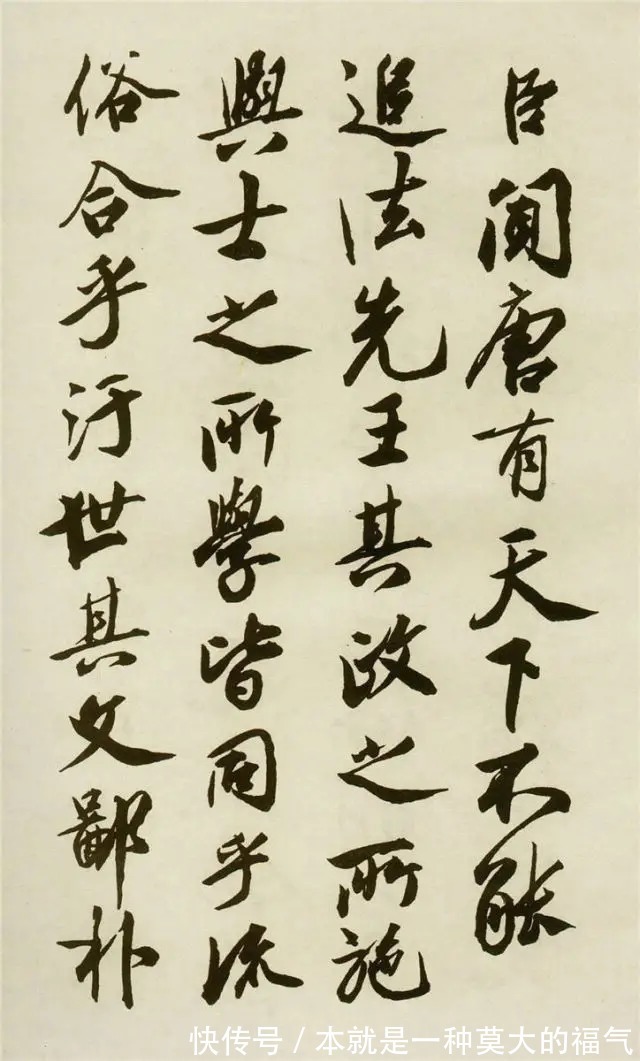 臣闻唐有天下不能
追法先王其政之所施
與士之所學皆同乎流
俗合乎汙世其文鄙朴
快传号/本就是一种莫大的福气